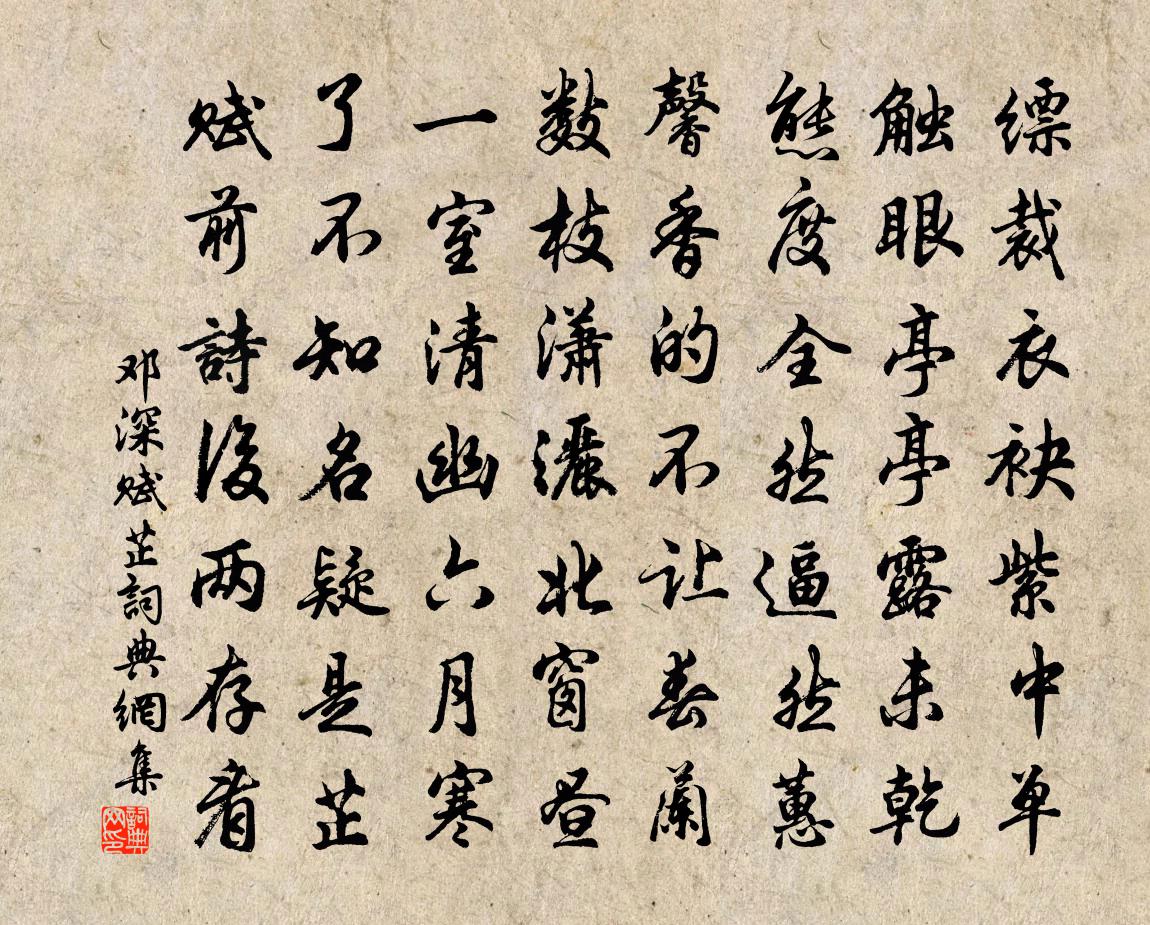 缥裁衣袂紫中单
触眼亭亭露未乾
態度全然逼然蕙
馨香的不让春蘭
数枝瀟灑北窗昼
一室清幽六月寒
了不知名疑是芷
赋前詩後两存看
邓深赋芷詞典網集
詞典网印